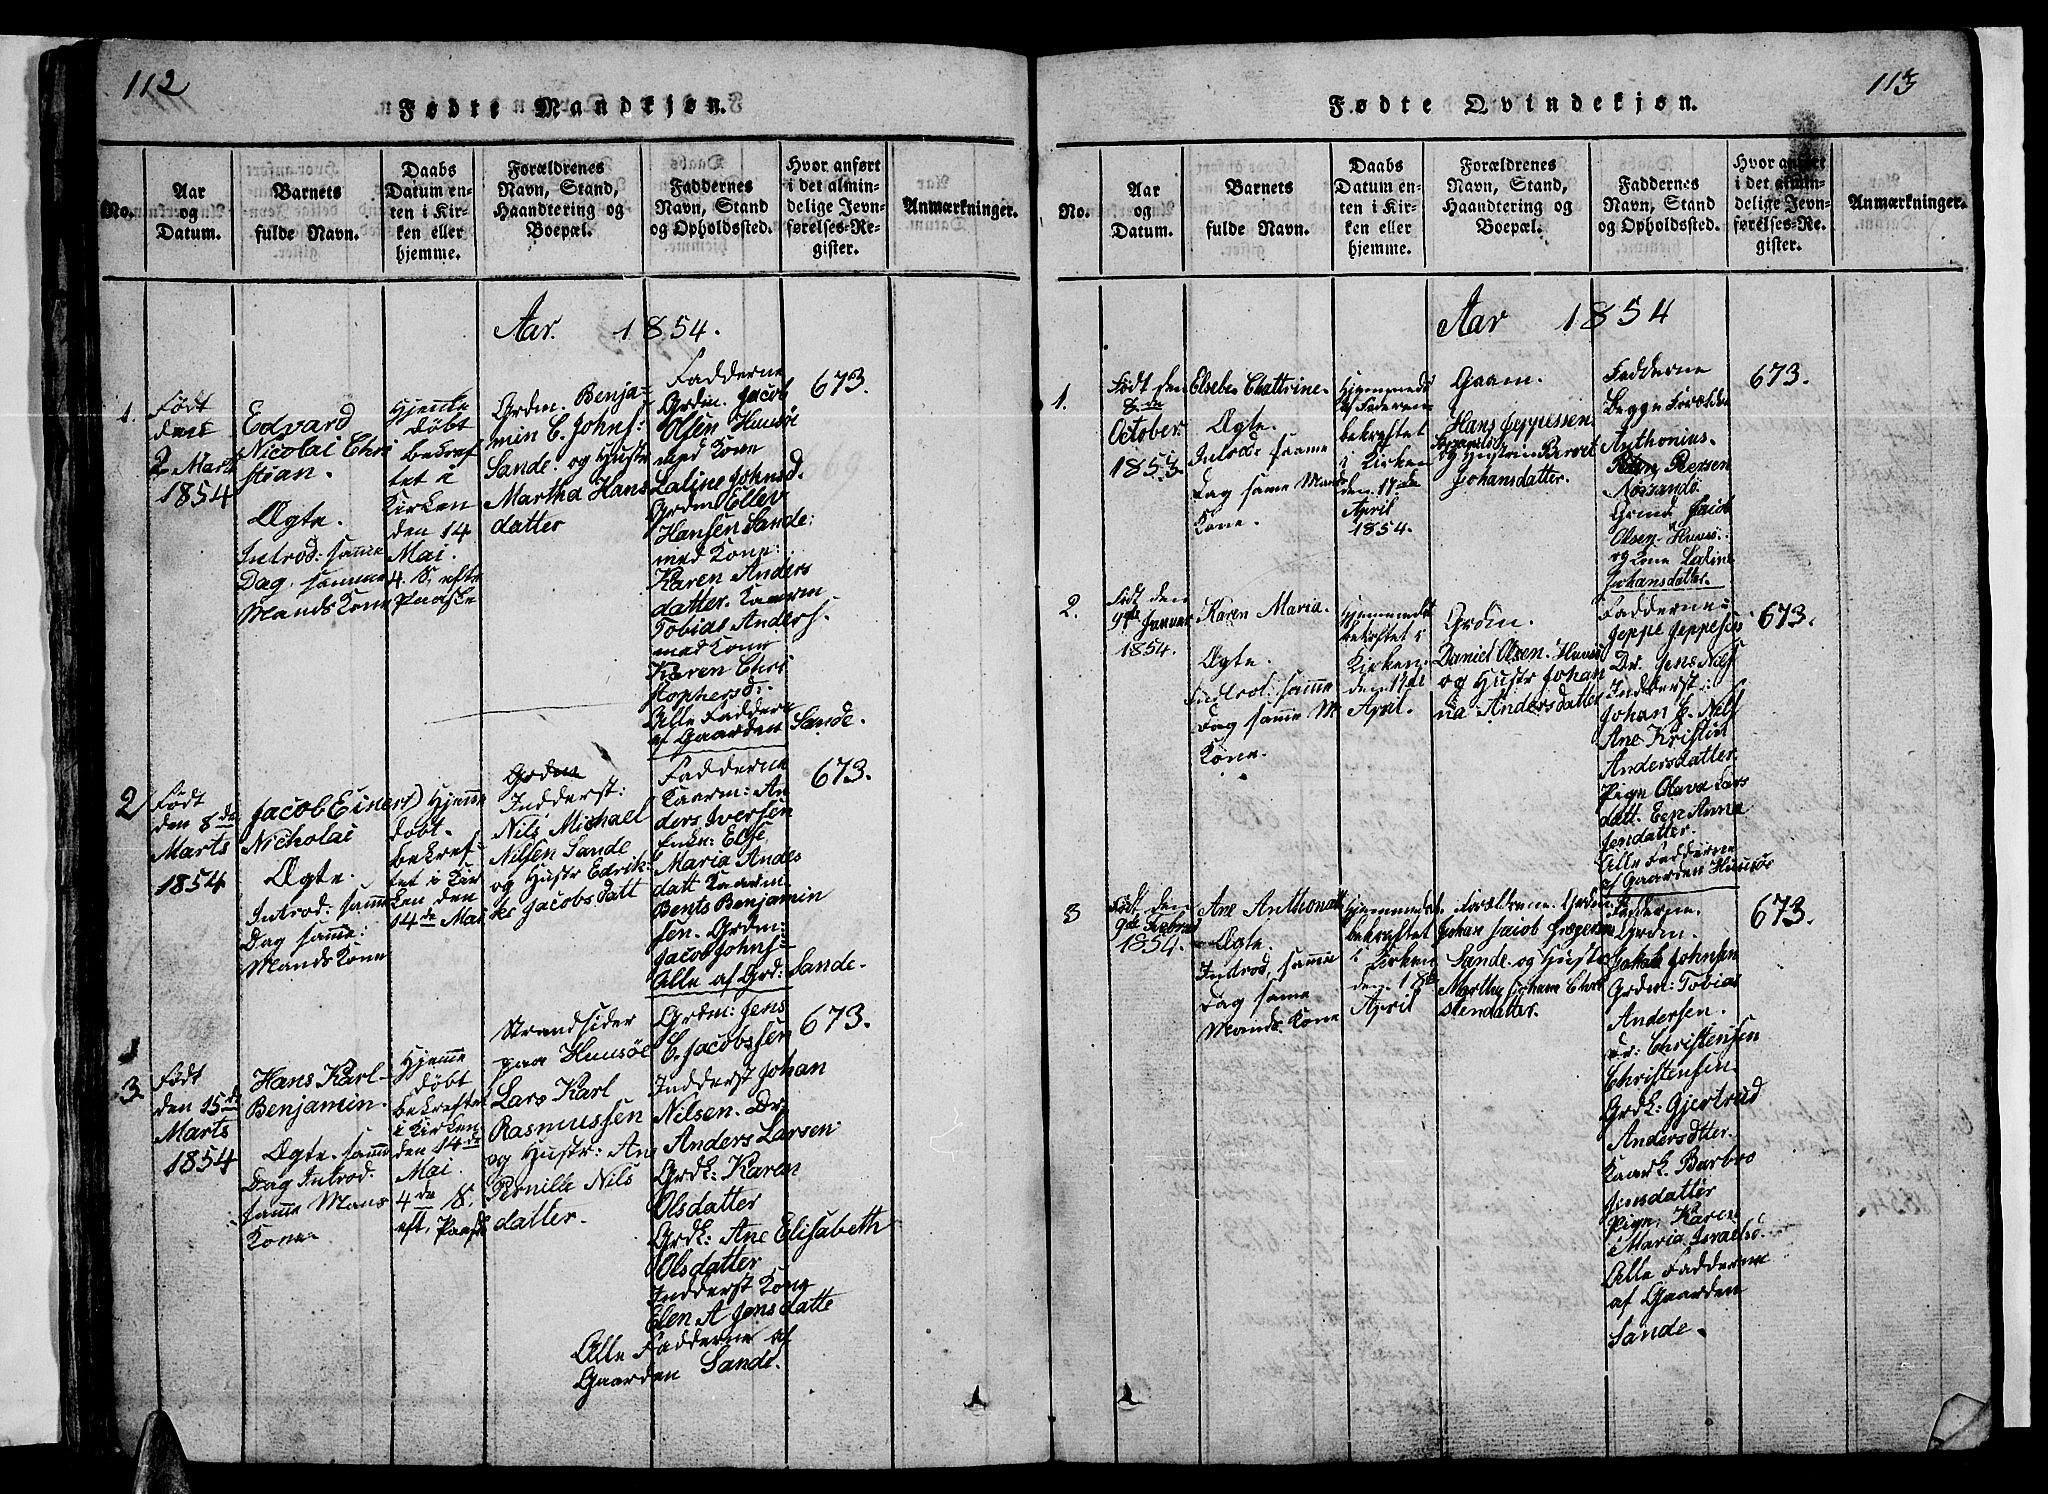 112
Fødte Mandkjøn.
No.
Aar
og
Datum.
Barnets
fulde Navn.
Daabs
Datum en-
ten i Kir-
ken eller
hjemme.
Forældrenes
Navn, Stand,
Haandtering og
Boepæl.
Faddernes
Navn, Stand
og Opholdssted.
Hvor anført
i det almin-
delige Jevn-
førelses-Re-
gister.
Anmærkninger.
Aar. 1854.
1.
Født
den
2 Marts
1854
Edvard
Nicolai Chri
stian.
Ægte.
Introd: samme
Dag. samme
Mands Kone
Hjemme
døbt
bekref
tet i
Kirken
den 14
Mai.
4. S. efte
Paaske
Grdm. Benja-
min C. Johns-
Sande. og Hustr
Martha Hans
datter
Fadderne
Grdm. Jacob
Olsen Huusöe
med Kone
Laline Johnsd.
Grdm Ellev
Hansen Sande:
med Kone:
Karen Anders
datter. Kaarm
Tobias Anders.
med Kone
Karen Chri
stophersd:
Alle Faddere
af Gaarden Sande.
673.
2
Født
den 8de
Marts
1854
Jacob Einert
Nicholai
Ægte.
Introd: samme
Dag samme:
Mands Kone
Hjemme
døbt.
bekref-
tet i Kir
ken den
14de Mai
Grdm
Indderst:
Nils Michael
Nilsen Sande
og Hustr Edrik-
ke Jacobs datt
Fadderne
Kaarm: An
ders Iversen
Enkn: Else
Maria Andes
datt Kaarm
Bents Benjamin
sen. Grdm:
Jacob Johns-
Alle af Grd: Sande.
673.
3.
Født
den 15de
Marts
1854
Hans Karl-
Benjamin.
Ægte. samme
Dag Introd.
samme Mans
Kone
Hjemme
døbt
bekreftet
i Kirken
den 14de
Mai
4de S.
eft, Paask
Strandsider
paa Huusöe
Lars Karl
Rasmussen
og Hustr: Ane
Pernille Nils
datter.
Grdm: Jens
C. Jacobssen
Indderst Johan
Nilsen. Dr.
Anders Larsen:
Grdk: Karen
Olsdatter
Grdk: Ane Elisabeth
Olsdatter
Indderst Kone
Elen A Jensdatte
Alle Fadderne af
Gaarden Sande.
673.
113
Fødte Qvindekjøn.
No.
Aar
og
Datum.
Barnets
fulde Navn.
Daabs
Datum en-
ten i Kir-
ken eller
hjemme.
Forældrenes
Navn, Stand,
Haandtering og
Boepæl.
Faddernes
Navn, Stand
og Opholdssted.
Hvor anført
i det almin-
delige Jevn-
førelses-Re-
gister.
Anmærkninger.
Aar 1854
1.
Født den
8de
October.
1853.
Elseba Cathrine.
Ægte.
Introd: samme
Dag same Mans
Kone.
Hjemmedøbt
af Faderen
bekreftet
i Kirken
den 17de
April
1854.
Gaam.
Hans Jeppessen
og Hustrue Beret
Johansdatter.
Fadderne
Begge Forældre
Anthonius.
Peter Persen
Nössanda
Grmd Jacob
Olsen. Huusö.
og Kone Laline
Johansdatter.
673.
2.
Født den
9de Januar
1854.
Karen Maria.
Ægte.
Introd: samme
Dag samme M
Kone.
Hjemmedøbt
bekreftet i
Kirken
den 17de
April.
Grdm.
Daniel Olsen. Huusö
og Hustr Johan
na Andersdatter
Fadderne:
Jeppe Jeppesen
Dr. Jens Nils
Indderst:
Johan J. Nils
Ane Kristin
Andersdatter.
Pige Olava Lars
datt. Een Anna
Jensdatter.
Alle Fadderne
af Gaarden Huusöe
673.
3
Født den
9de Febrar
1854.
Ane Anthonette
Ægte.
Introd, samme
Dag same
Mands Kone
Hjemmedø
bekreftet
i Kirken
den 18de
April
Forældrene. Grdm
Johan Jacob
Sande. og Hustr
Martha Johana Chri
stendatter.
Fadderne.
Grdm.
Jakob Johnsen
Grdm: Tobias
Andersen.
Dr: Christensen
Christensen
Grdk: Gjertrud
Andersdtter.
Kaark. Barbro
Jensdatter
Pign: Karen
Maria Israelsd.
Alle Fadderne
af Gaarden
Sande.
673.